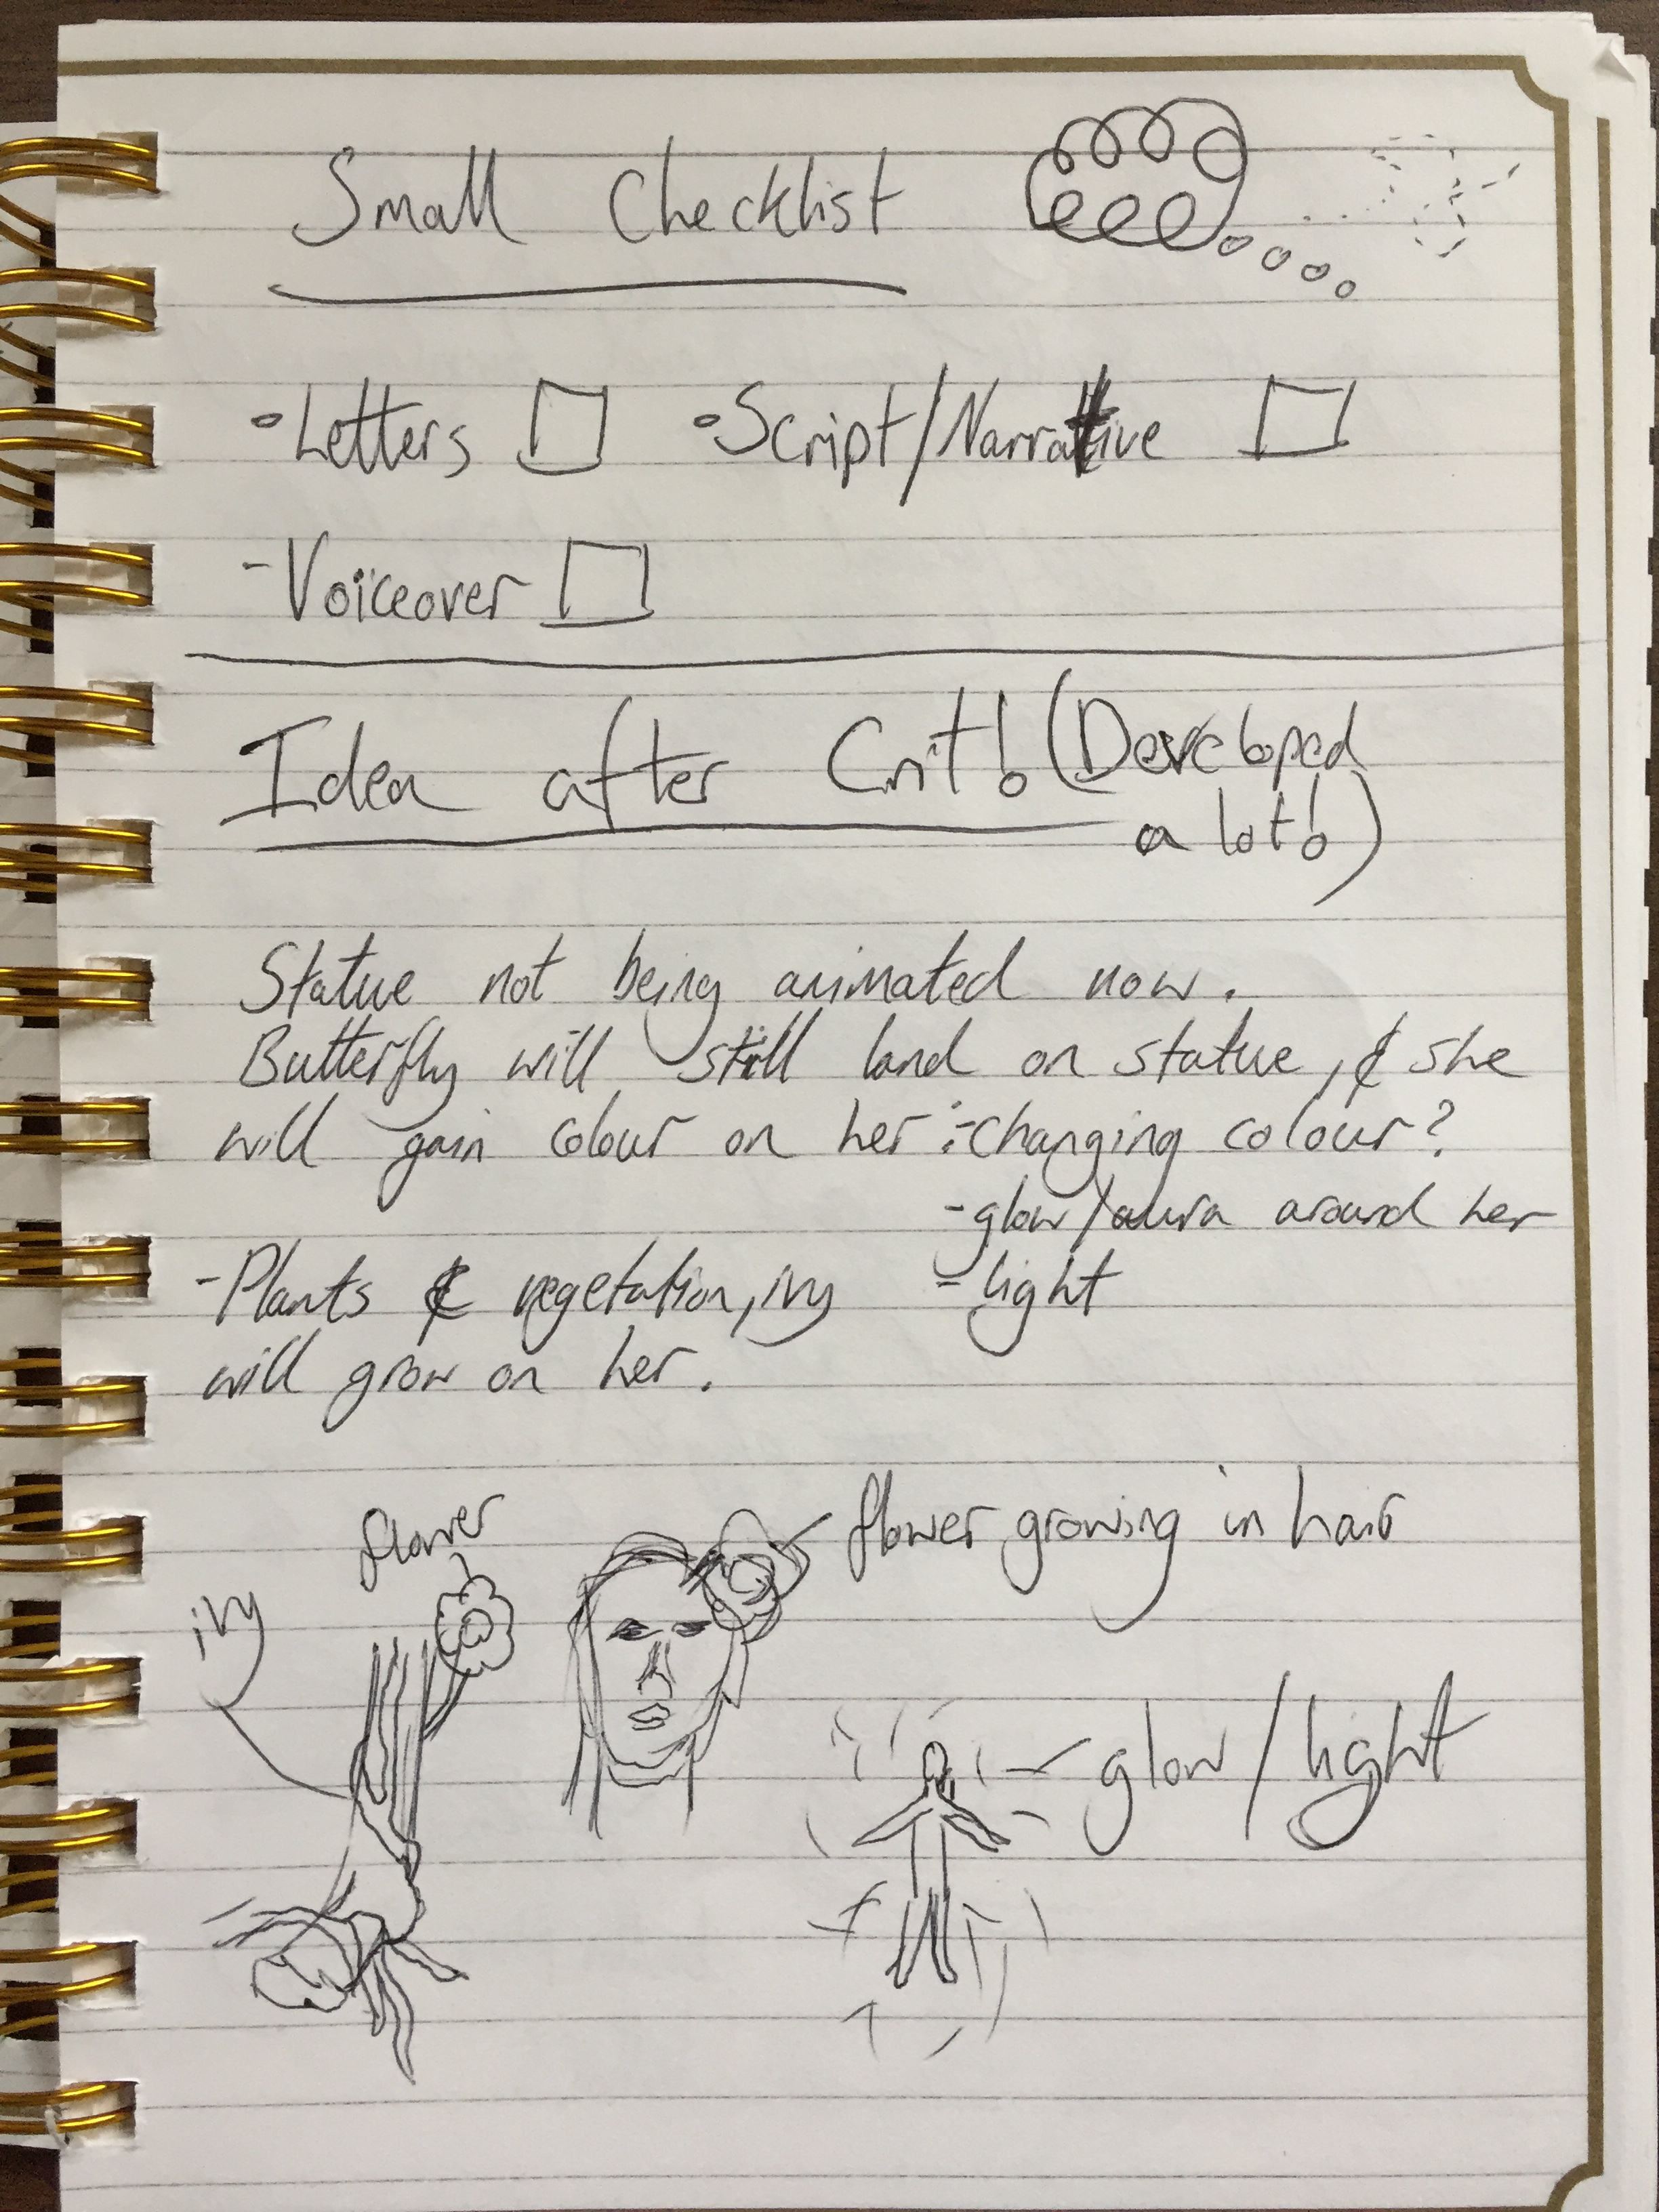 Small Checklist
• Letters • Script/Narrative
- Voiceover
Idea after Crit! (Developed
a lot!)
Statue not being animated now.
Butterfly will still land on statue, & she
will gain colour on her :-changing colour?
- glow/aura around her
- Plants & vegetation, ivy - light
will grow on her.
flower flower growing in hair
ivy
glow/light